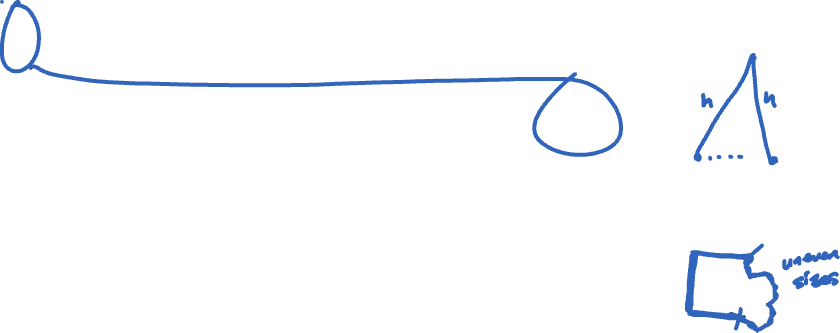 n n
uneven
sizes